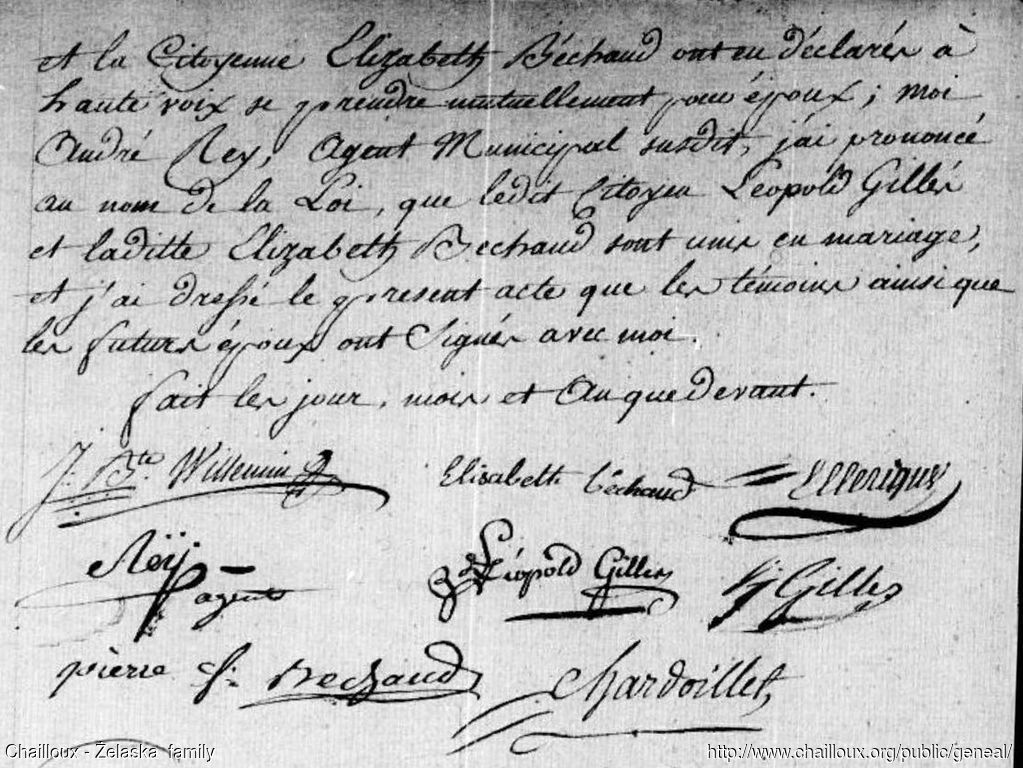 et la Citoyenne Elizabeth Béchaud ont eu déclarés à
haute voix se prendre mutuellement pour époux; moi
André Rey, Agent Municipal susdit, j'ai prononcé
au nom de la Loi, que ledit Citoyen Léopold Gillés
et laditte Elizabeth Bechaud sont unis en mariage,
et j'ai dressé le present acte que les témoins ainsi que
les futurs époux ont Signés avec moi.
fait les jour, mois et An que devant.
J. Bte. Willemin Elisabeth béchaud
Reÿ Léopold Gilles Gilles
agent
pierre Bechaud Chardoillet
Chailloux - Želaska family http://www.chailloux.org/public/geneal/